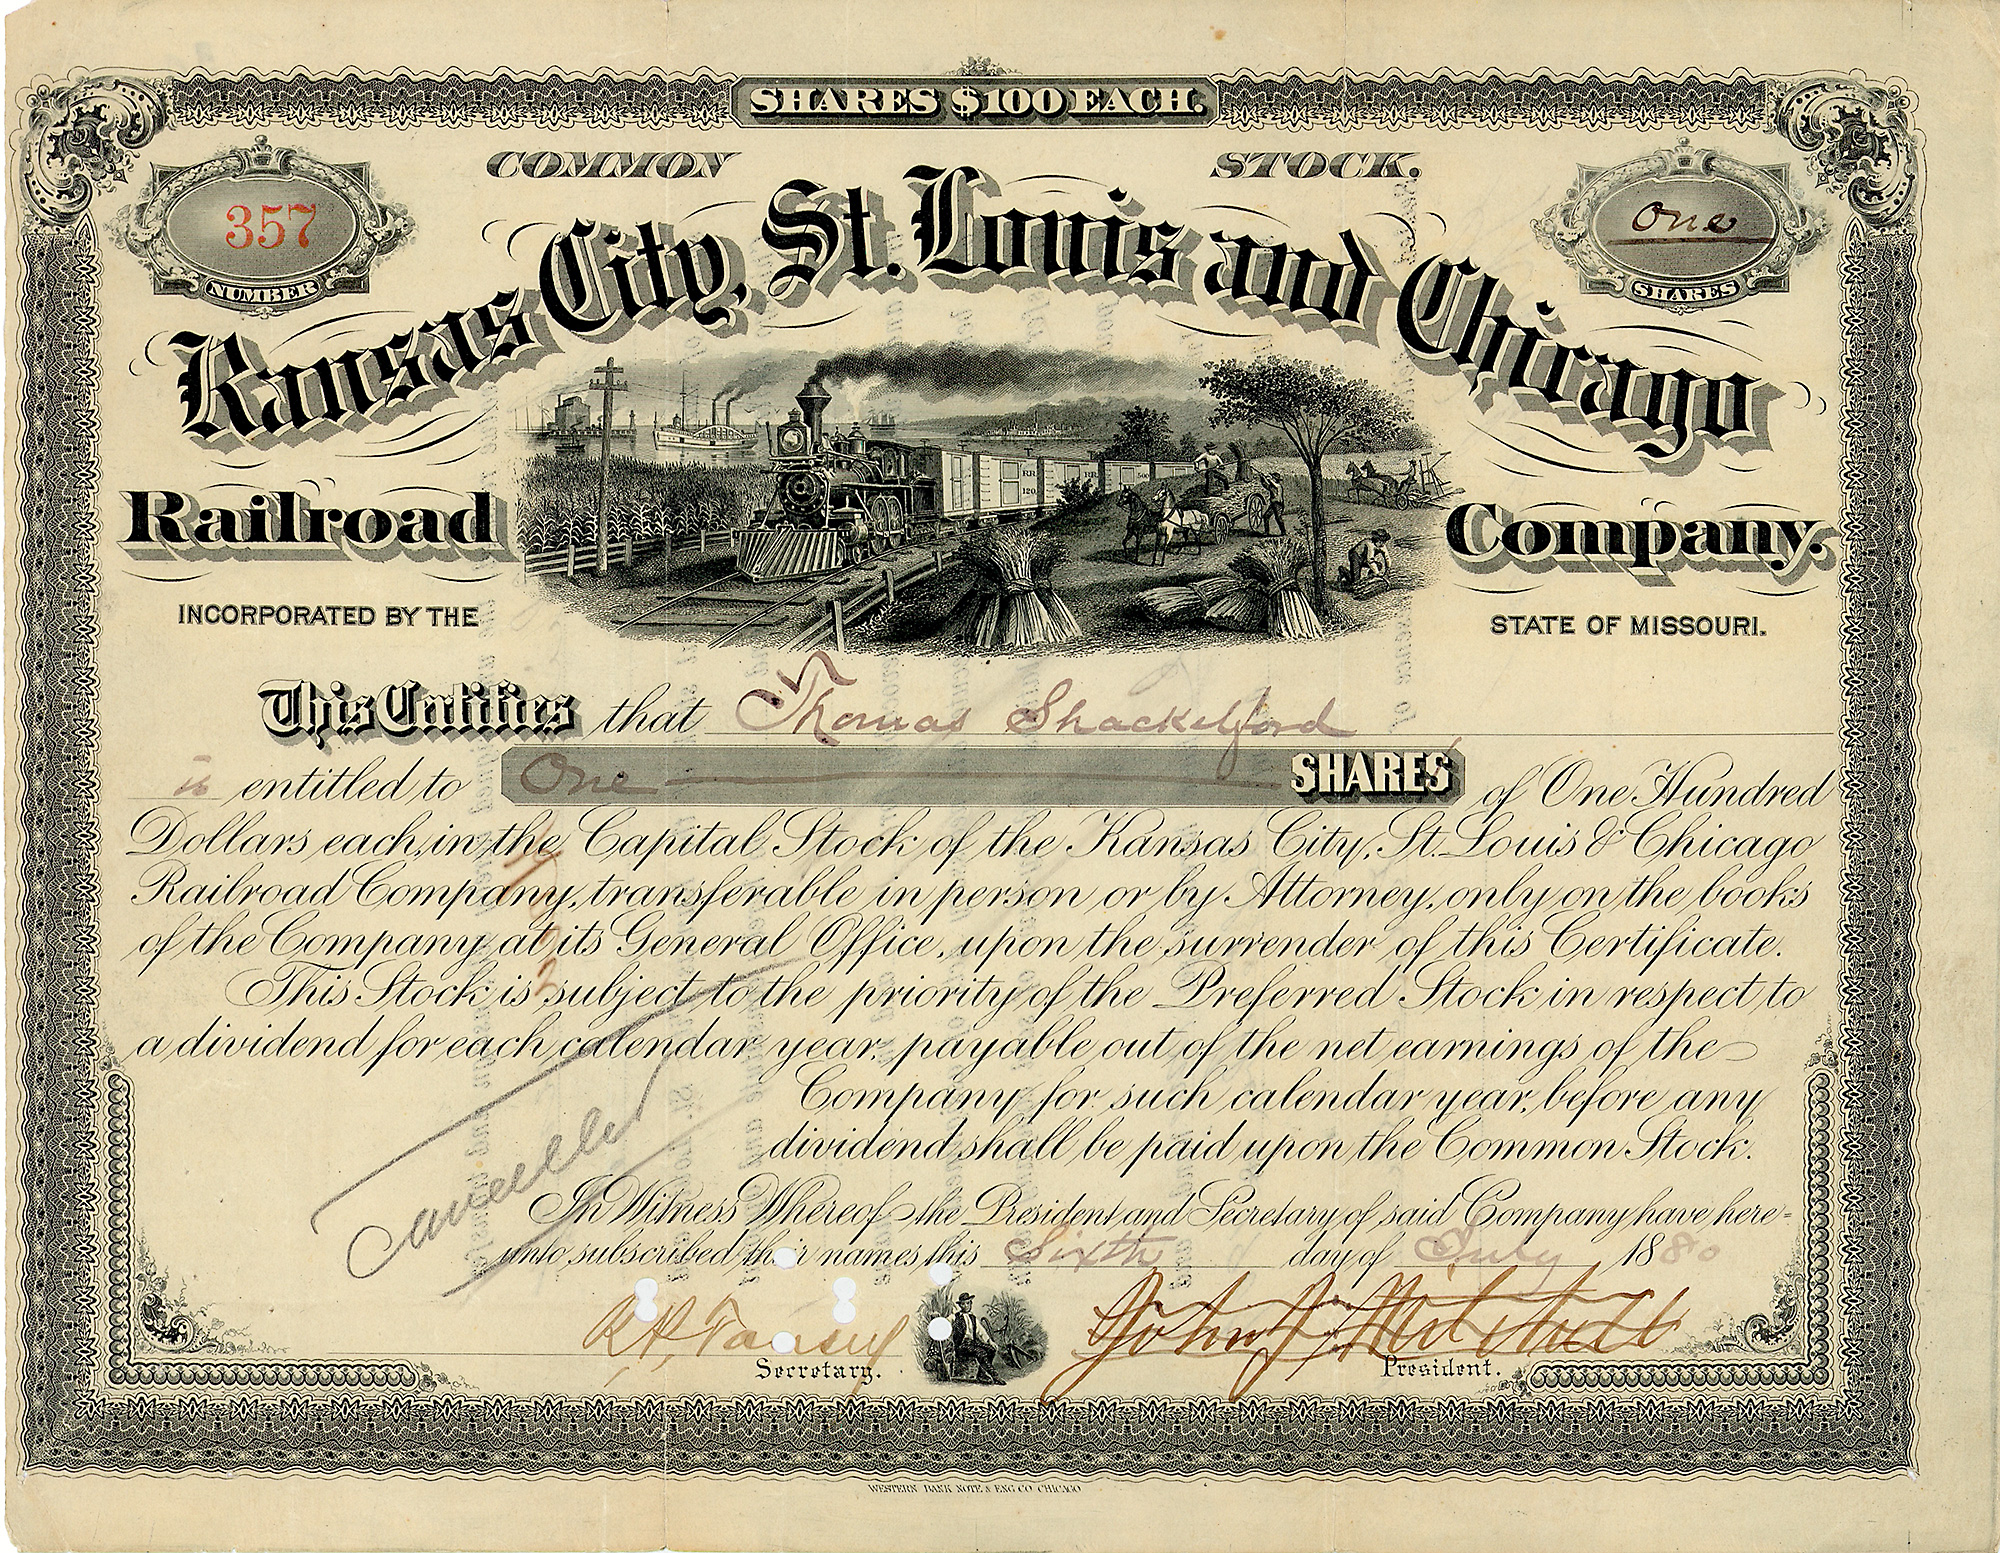 SHARES $100 EACH.
COMMON STOCK.
357
NUMBER
One
SHARES
Kansas City, St. Louis and Chicago
Railroad Company.
INCORPORATED BY THE STATE OF MISSOURI.
This Certifies that Thomas Shackelford
is entitled to One SHARES of One Hundred
Dollars each, in the Capital Stock of the Kansas City, St. Louis & Chicago
Railroad Company, transferable in person or by Attorney, only on the books
of the Company at its General Office, upon the surrender of this Certificate.
This Stock is subject to the priority of the Preferred Stock in respect to
a dividend for each calendar year, payable out of the net earnings of the
Company for such calendar year, before any
dividend shall be paid upon the Common Stock.
Cancelled
In Witness Whereof the President and Secretary of said Company have here-
unto subscribed their names this Sixth day of July 1880
R. P. Tansey John J. Mitchell
Secretary. President.
WESTERN BANK NOTE & ENG CO CHICAGO